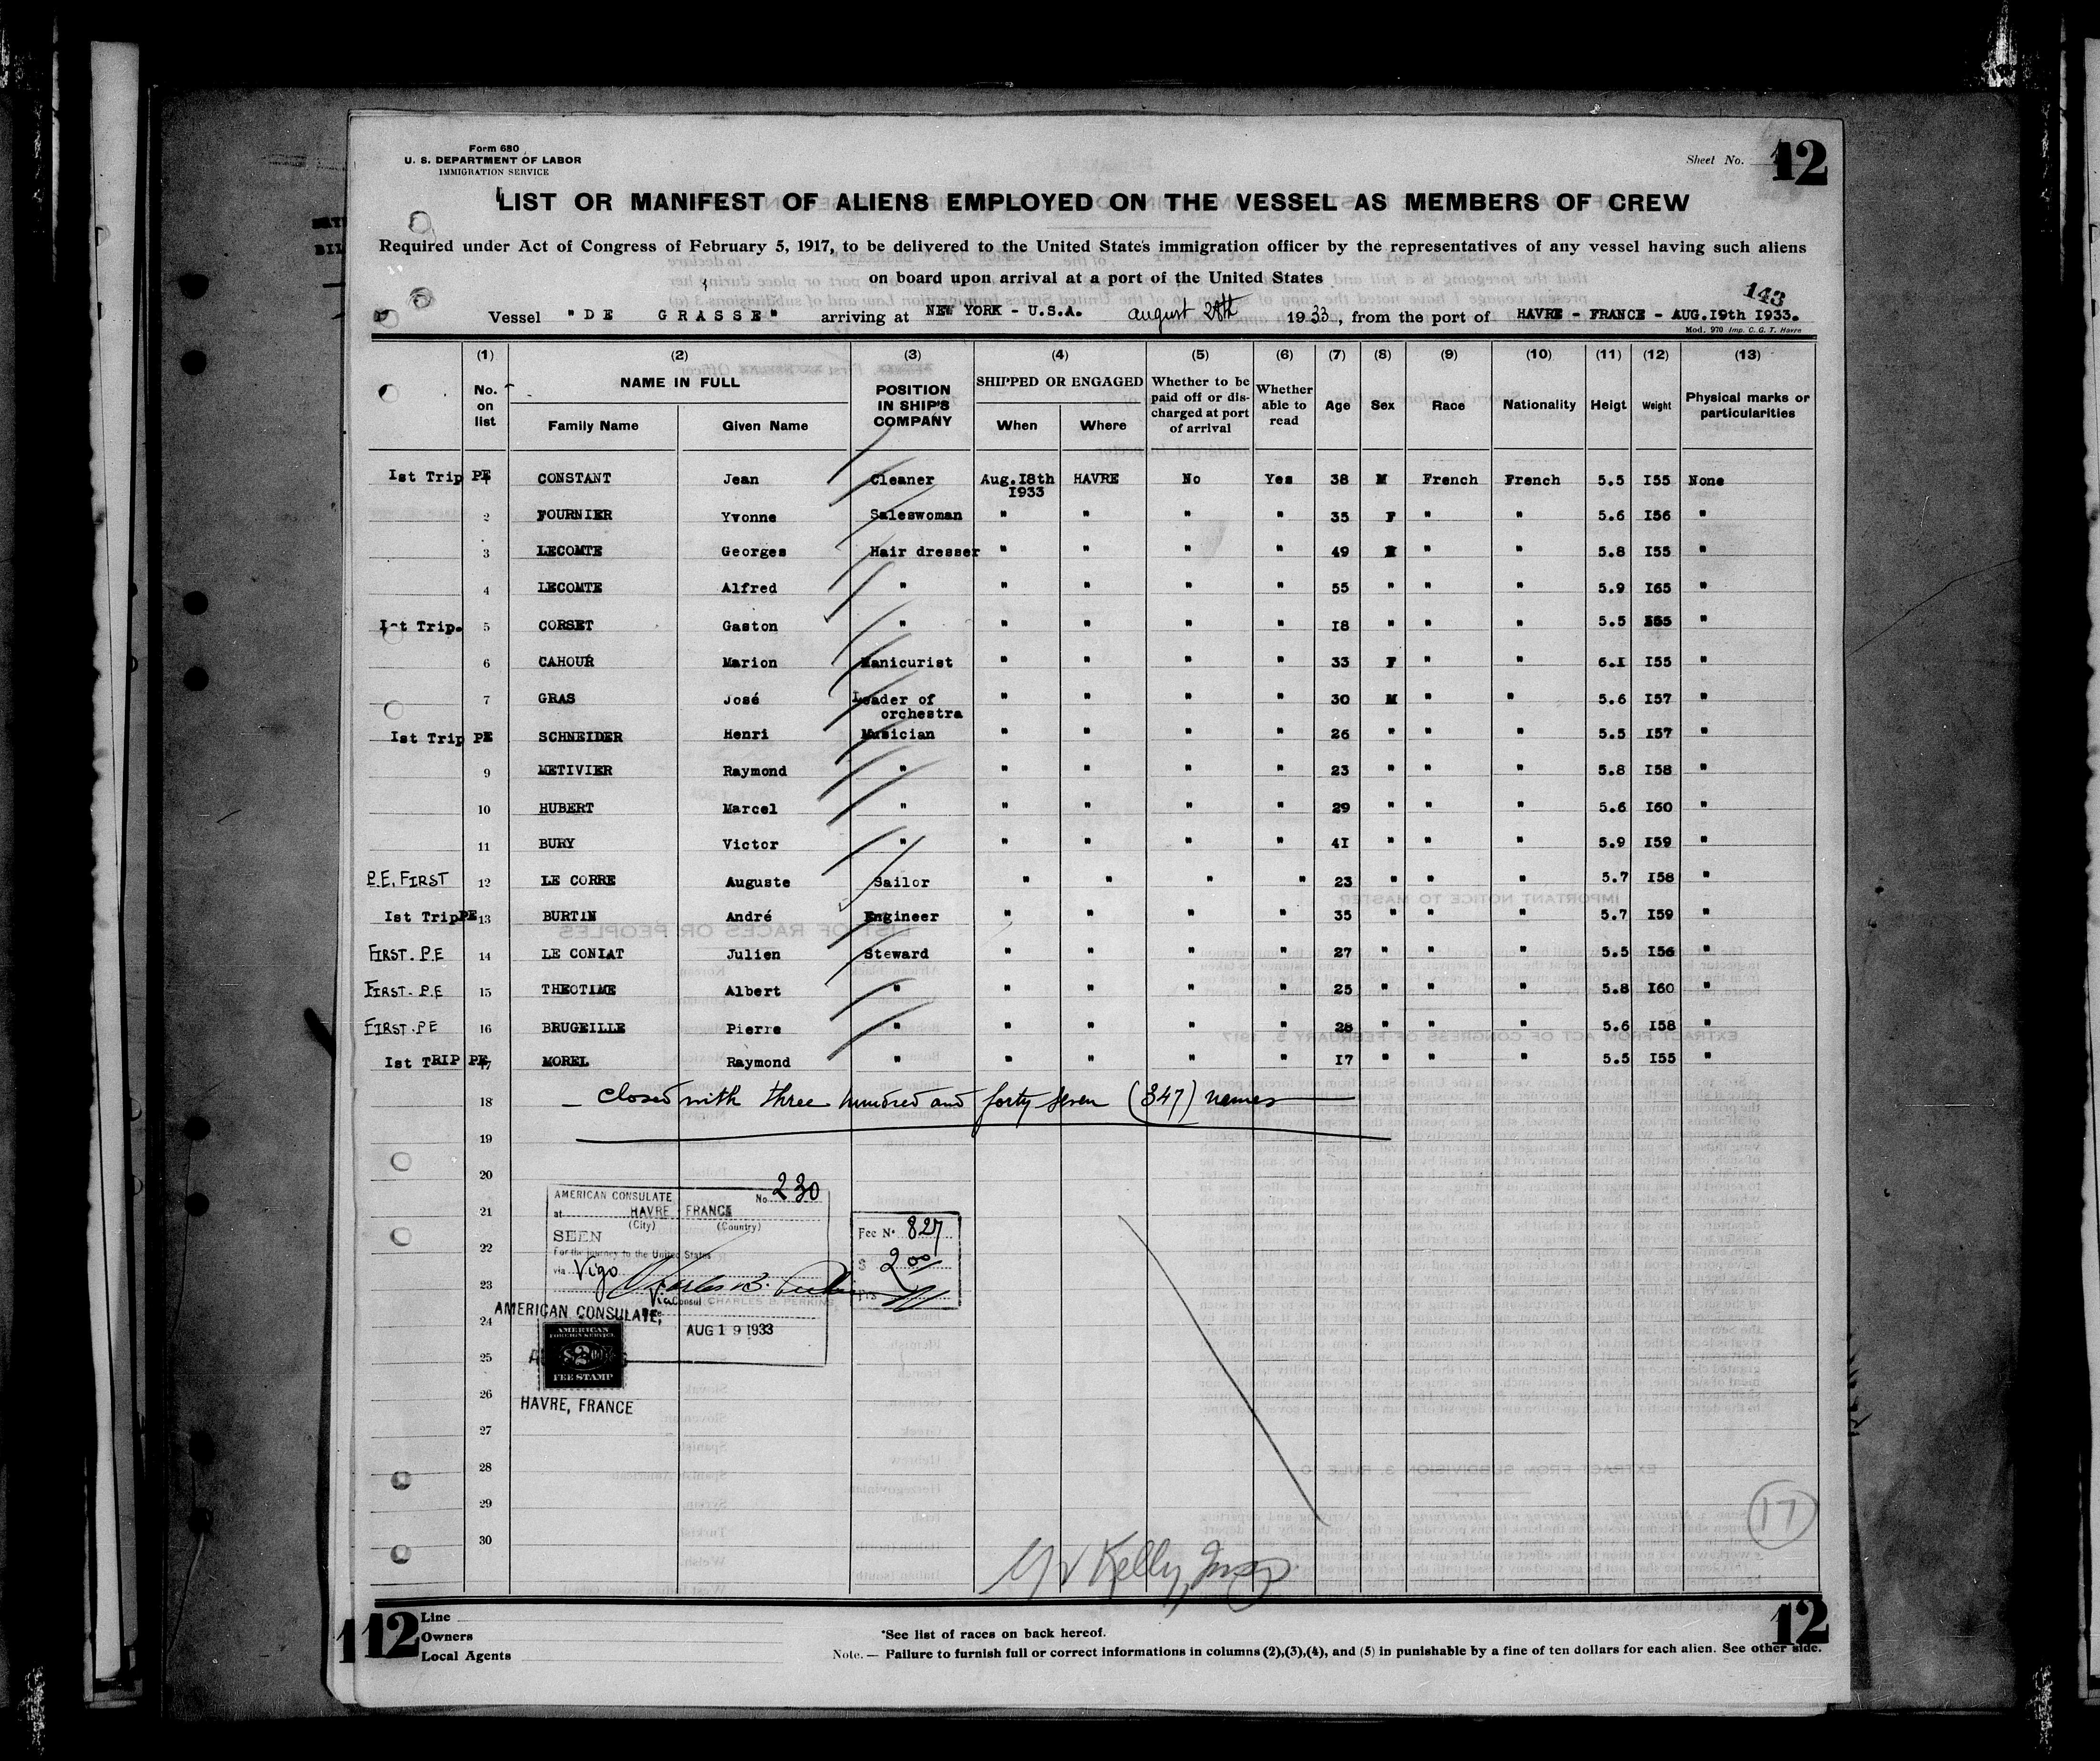 Form 680
U. S. DEPARTMENT OF LABOR
IMMIGRATION SERVICE
Sheet No. 12
LIST OR MANIFEST OF ALIENS EMPLOYED ON THE VESSEL AS MEMBERS OF CREW
Required under Act of Congress of February 5, 1917, to be delivered to the United States immigration officer by the representatives of any vessel having such aliens
on board upon arrival at a port of the United States
143
Vessel "DE GRASSE" arriving at NEW YORK - U.S.A. august 28th 1933, from the port of HAVRE - FRANCE - AUG.I9th I933.
Mod. 970 Imp. C. G. T. Havre
(1) (2) (3) (4) (5) (6) (7) (8) (9) (10) (11) (12) (13)
No. on list NAME IN FULL Family Name Given Name POSITION IN SHIP'S COMPANY SHIPPED OR ENGAGED When Where Whether to be paid off or discharged at port of arrival Whether able to read Age Sex Race Nationality Heigt Weight Physical marks or particularities
Ist Trip PE CONSTANT Jean Cleaner Aug.I8th I933 HAVRE No Yes 38 M French French 5.5 I55 None
2 FOURNIER Yvonne Saleswoman " " " " 35 F " " 5.6 I56 "
3 LECOMTE Georges Hair dresser " " " " 49 M " " 5.8 I55 "
4 LECOMTE Alfred " " " " " 55 " " " 5.9 I65 "
Ist Trip. 5 CORSET Gaston " " " " " I8 " " " 5.5 "
6 CAHOUR Marion Manicurist " " " " 33 F " " 6.I I55 "
7 GRAS José Leader of orchestra " " " " 30 M " " 5.6 I57 "
Ist Trip PE SCHNEIDER Henri Musician " " " " 26 " " " 5.5 I57 "
9 METIVIER Raymond " " " " " 23 " " " 5.8 I58 "
10 HUBERT Marcel " " " " " 29 " " " 5.6 I60 "
11 BURY Victor " " " " " 4I " " " 5.9 I59 "
P.E. FIRST 12 LE CORRE Auguste Sailor " " " " 23 " " " 5.7 I58 "
Ist Trip PE 13 BURTIN André Engineer " " " " 35 " " " 5.7 I59 "
FIRST. P.E 14 LE CONIAT Julien Steward " " " " 27 " " " 5.5 I56 "
FIRST. P.E 15 THEOTIME Albert " " " " " 25 " " " 5.8 I60 "
FIRST. PE 16 BRUGEILLE Pierre " " " " " 28 " " " 5.6 I58 "
Ist TRIP PE 17 MOREL Raymond " " " " " I7 " " " 5.5 I55 "
18 _ closed with three hundred and forty seven (347) names
19
20
21
22
23
24
25
26
27
28
29
30
AMERICAN CONSULATE No. 230
at HAVRE FRANCE
(City) (Country)
SEEN
For the journey to the United States
via Vigo
Charles B. Perkins
Vice Consul CHARLES B. PERKINS
AUG 19 1933
Fee No. 827
$ 2.00
Frs
AMERICAN CONSULATE,
AMERICAN
FOREIGN SERVICE
$2
FEE STAMP
HAVRE, FRANCE
17
Kelly, Insp
112 12
Line
Owners
Local Agents
*See list of races on back hereof.
Note. — Failure to furnish full or correct informations in columns (2),(3),(4), and (5) in punishable by a fine of ten dollars for each alien. See other side.